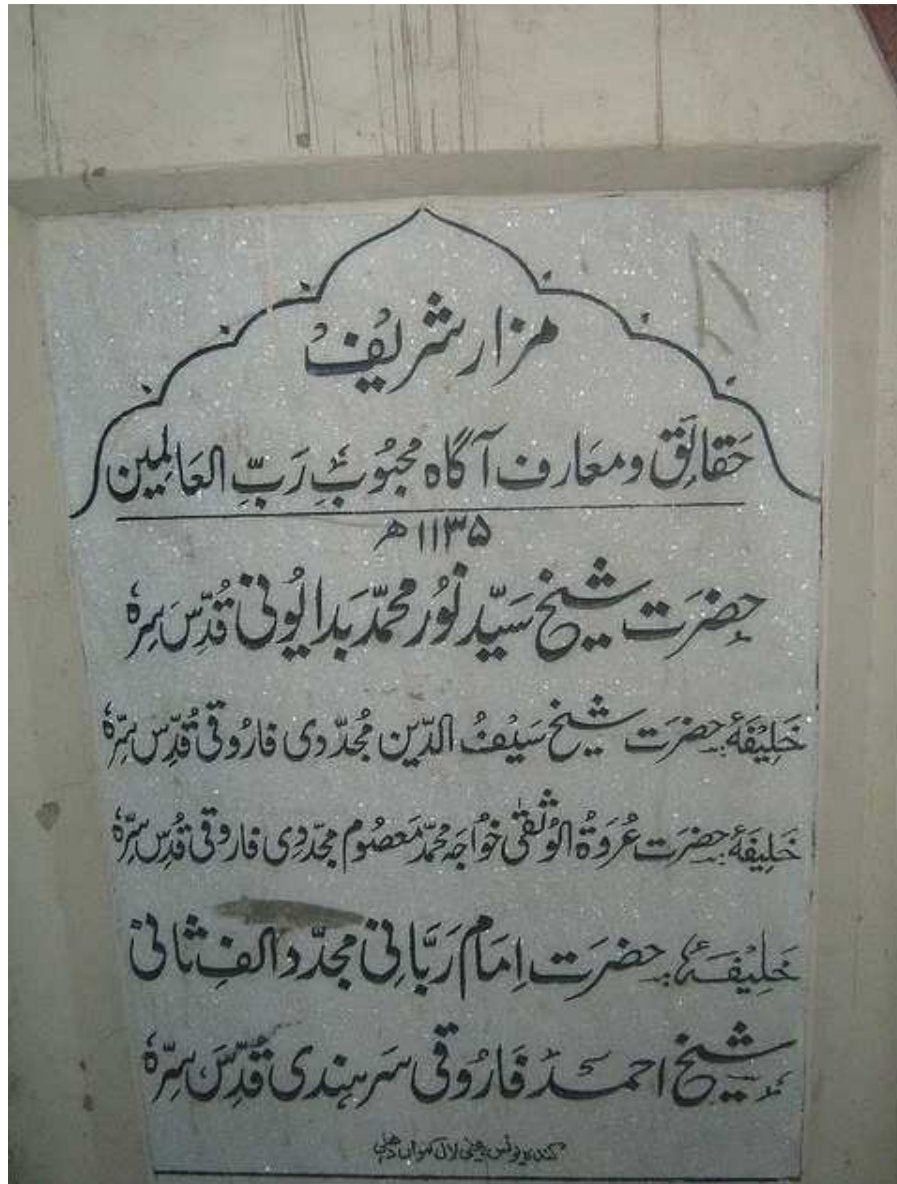 مزار شریف
حَقائِق و معَارف آگاہ محبُوبِ رَبِّ العَالمِین
۱۱۳۵ھ
حضرَت شیخ سَیّد نُور محمّد بَدایُونی قُدِّسَ سِرہٗ
خَلِیفَۂ حضرَت شیخ سَیفُ الدِّین مُجدّدی فارُوقی قُدِّس سِرّہٗ
خَلِیفَۂ حضرَت عُروَۃُ الوُثقیٰ خواجہ محمّد مَعصُوم مجدّدی فاروقی قُدِّس سِرّہٗ
خَلِیفَۂ حضرَت اِمَام رَبَّانِی مجدّد الفِ ثانی
شیخ احمد فَارُوقی سَرہندی قُدِّسَ سِرّہٗ
لال کنواں دہلی